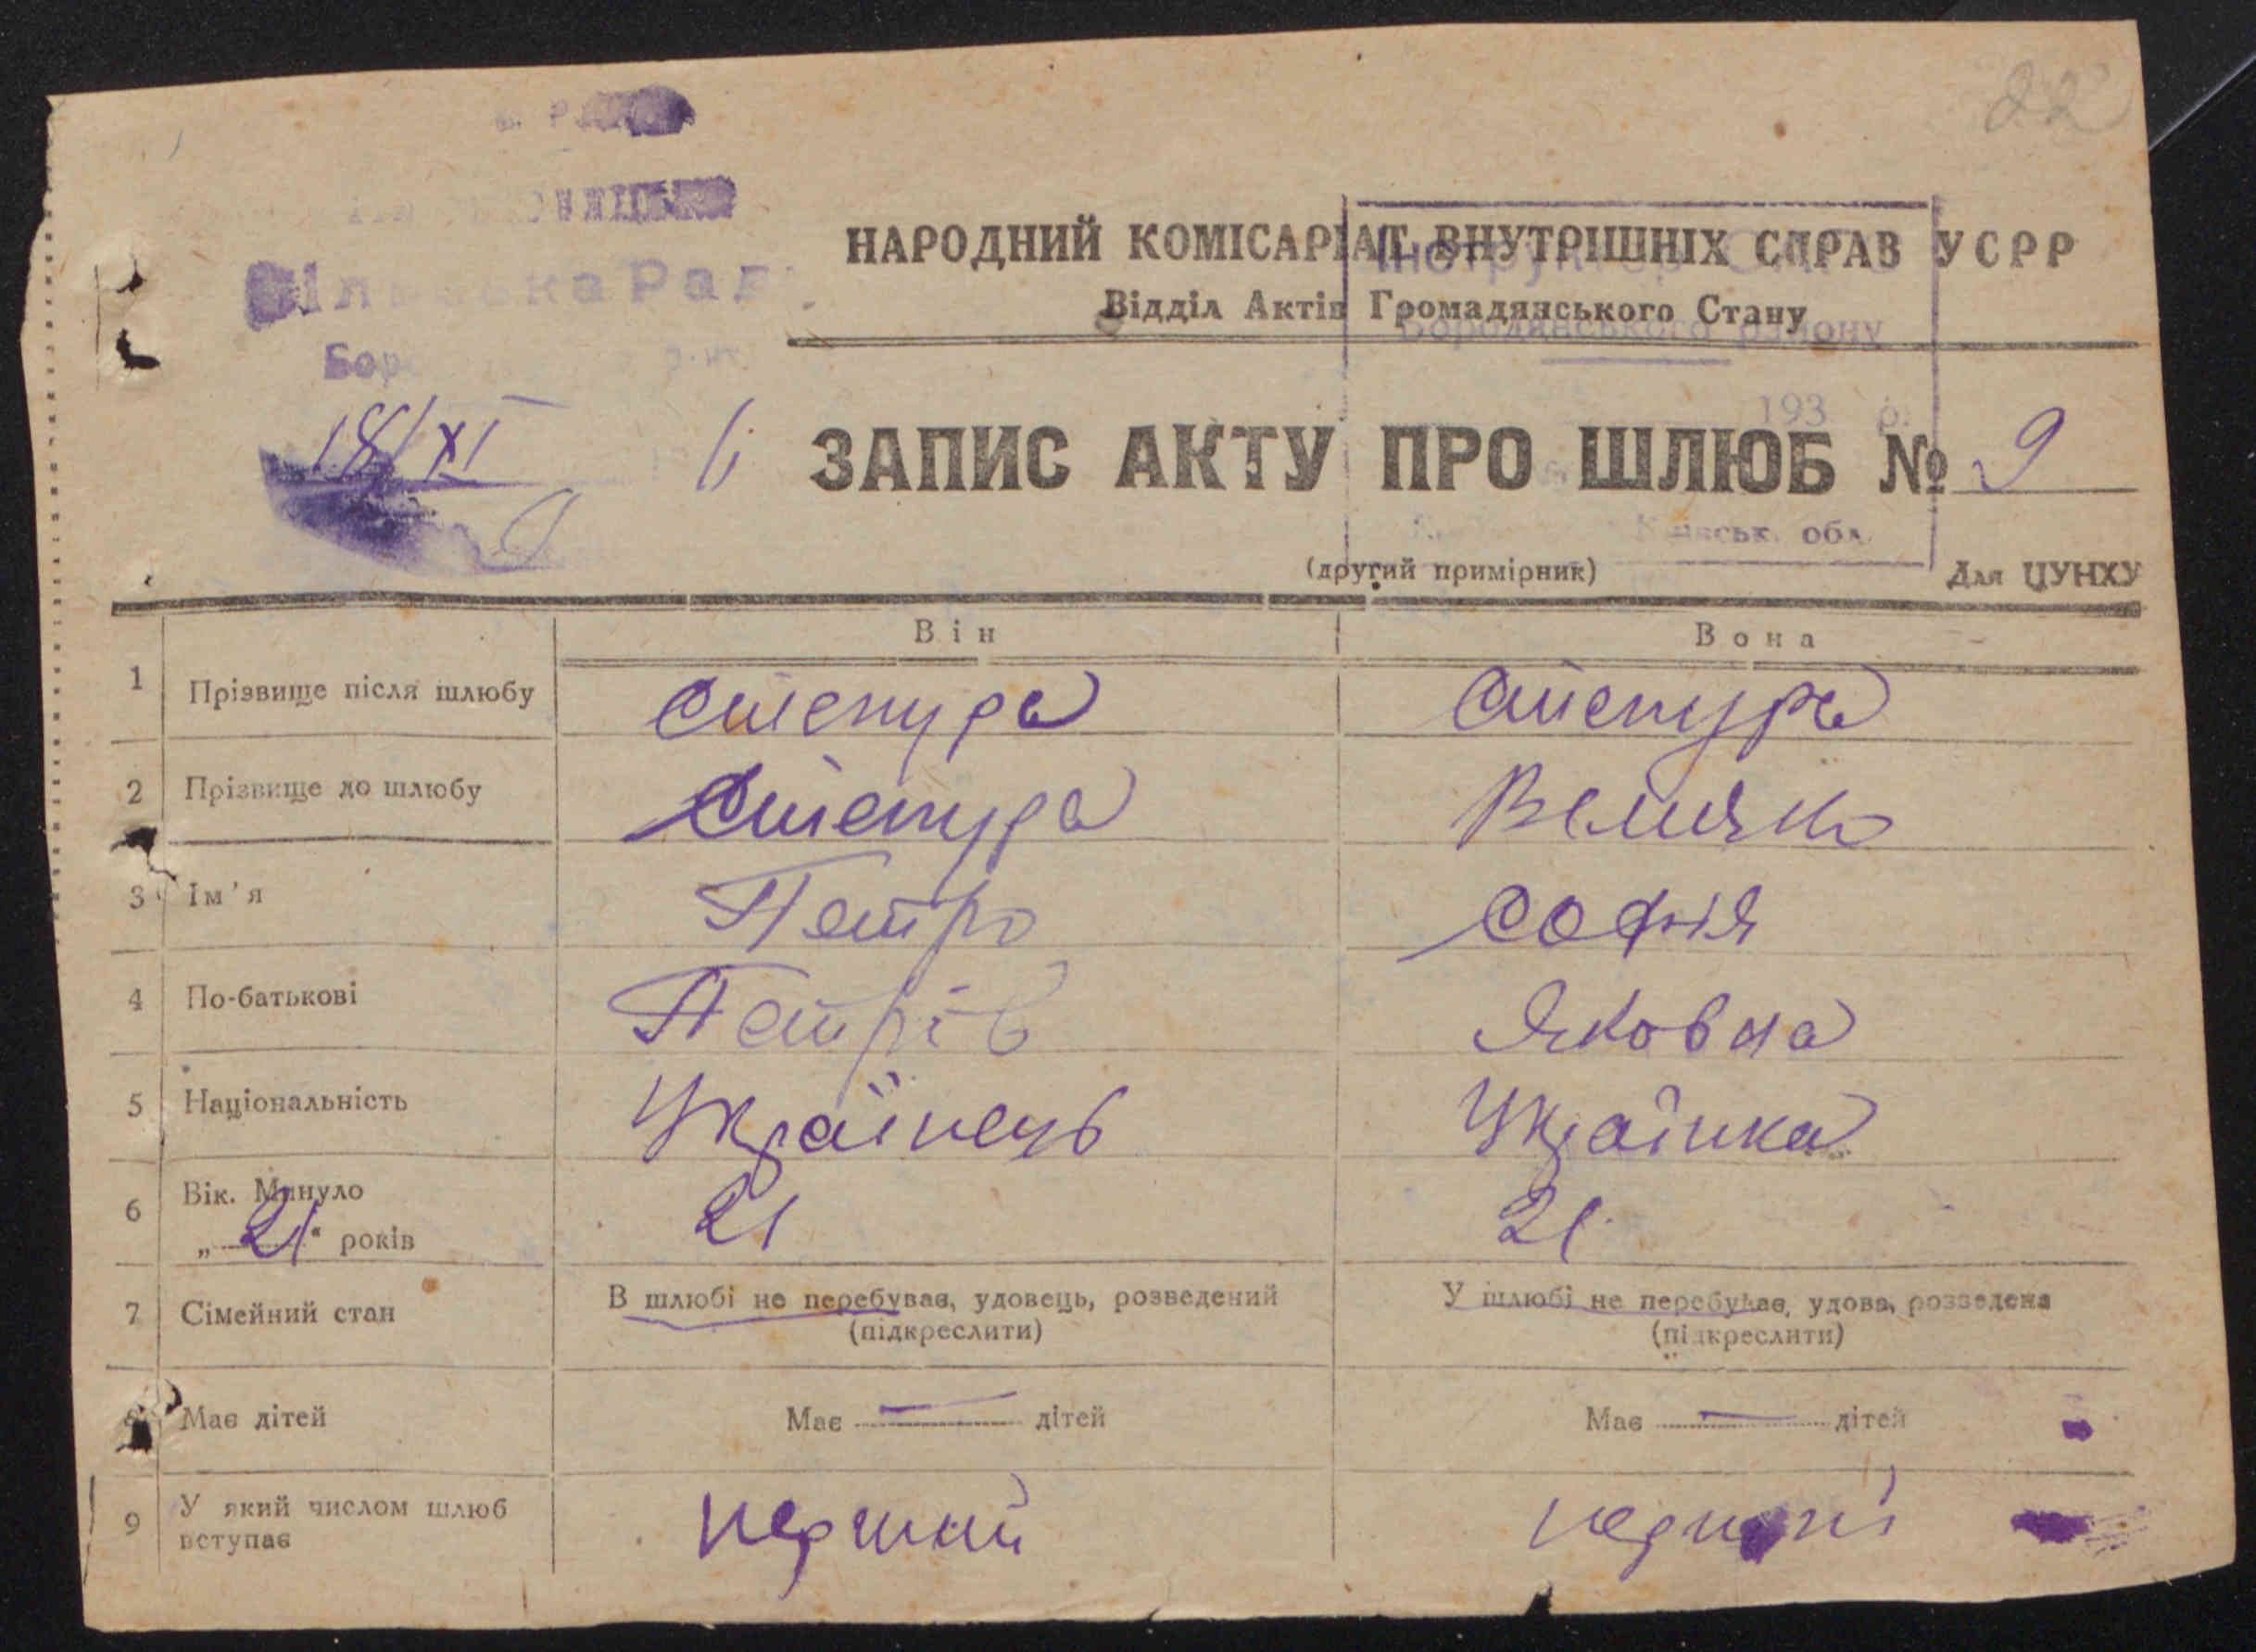 22
НАРОДНИЙ КОМІСАРІАТ ВНУТРІШНІХ СПРАВ УСРР
Відділ Актів Громадянського Стану
Бородянського району
Рада
193 р.
18/XI
ЗАПИС АКТУ ПРО ШЛЮБ № 9
обл.
(другий примірник)
Для ЦУНХУ
Він Вона
1 Прізвище після шлюбу Степура Степура
2 Прізвище до шлюбу Степура Величко
3 Ім'я Петро Софія
4 По-батькові Петрів Яковна
5 Національність Українець Українка
6 Вік. Минуло 21 21
„ 21 " років
7 Сімейний стан В шлюбі не перебуває, удовець, розведений У шлюбі не перебуває, удова, розведена
(підкреслити) (підкреслити)
8 Має дітей Має — дітей Має — дітей
9 У який числом шлюб вступає перший перший